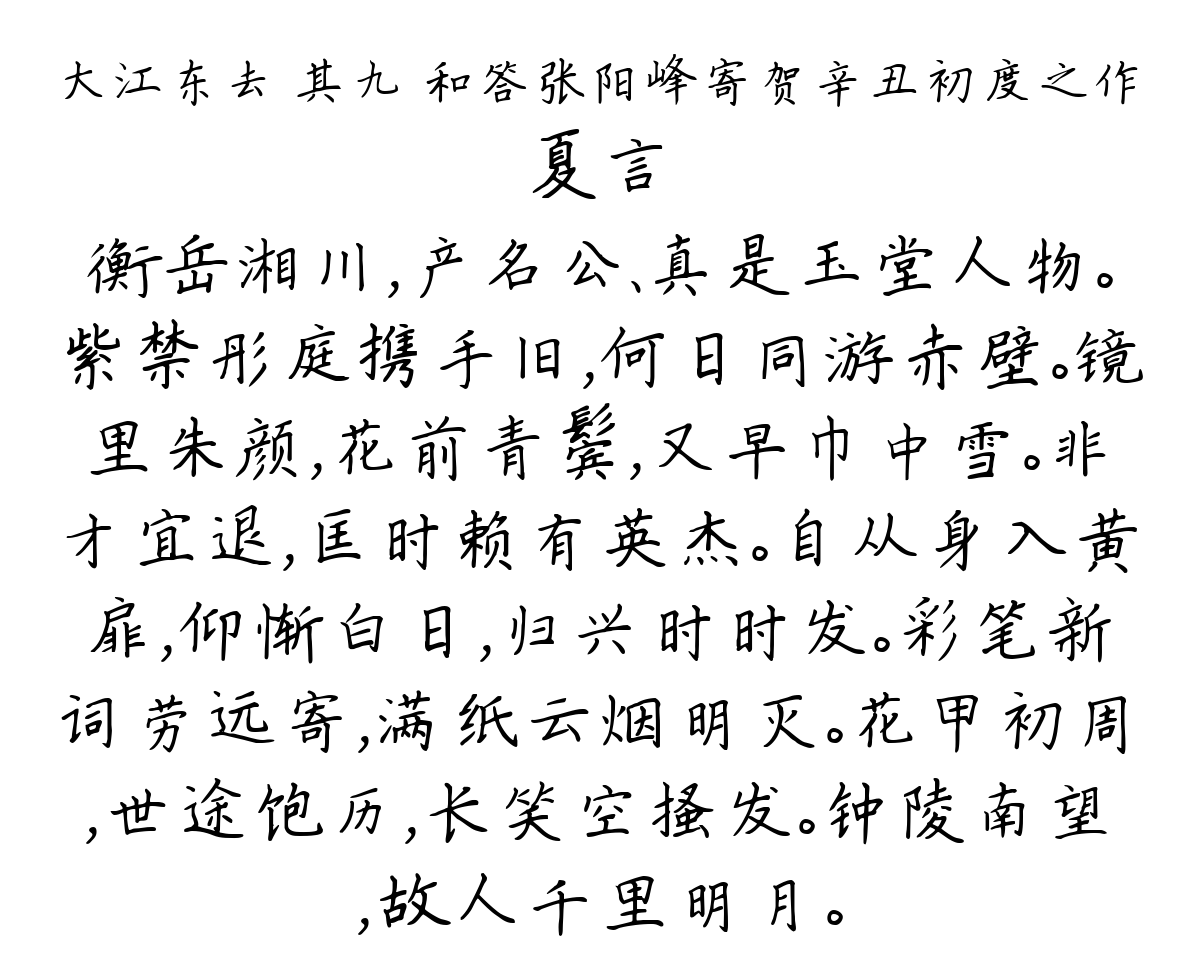 大江东去 其九 和答张阳峰寄贺辛丑初度之作
夏言
衡岳湘川,产名公、真是玉堂人物。
紫禁彤庭携手旧,何日同游赤壁。镜
里朱颜,花前青鬓,又早巾中雪。非
才宜退,匡时赖有英杰。自从身入黄
扉,仰惭白日,归兴时时发。彩笔新
词劳远寄,满纸云烟明灭。花甲初周
,世途饱历,长笑空搔发。钟陵南望
,故人千里明月。